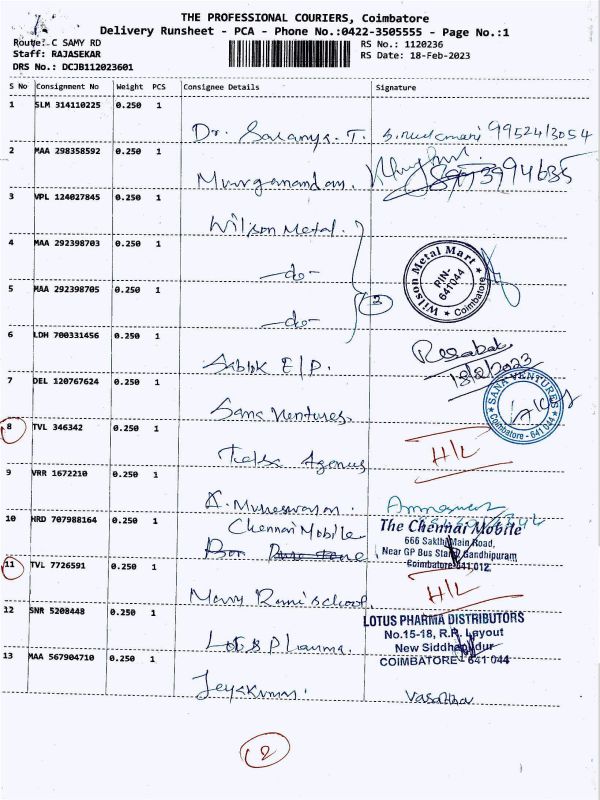 THE PROFESSIONAL COURIERS, Coimbatore
Delivery Runsheet - PCA - Phone No.:0422-3505555 - Page No.:1
Route: C SAMY RD RS No.: 1120236
Staff: RAJASEKAR RS Date: 18-Feb-2023
DRS No.: DCJB112023601
S No Consignment No Weight PCS Consignee Details Signature
1 SLM 314110225 0.250 1
Dr. Saranya. T. 9952413054
2 MAA 298358592 0.250 1
Murganandam.
3 VPL 124027845 0.250 1
Wilson Metal.
4 MAA 292398703 0.250 1
-do-
Wilson Metal Mart
PIN-
641044
Coimbatore
5 MAA 292398705 0.250 1
3
-do-
6 LDH 700331456 0.250 1
Ashok E/P.
18/2/2023
7 DEL 120767624 0.250 1
SANA VENTURES
Coimbatore - 641 044
Sana Ventures
8 TVL 346342 0.250 1
H/L
9 VRR 1672210 0.250 1
A. Muneswaran.
10 HRD 707988164 0.250 1
Chennai Mobile
The Chennai Mobile
666 Sakthi Main Road,
Near GP Bus Stand, Gandhipuram
Coimbatore-641 012
11 TVL 7726591 0.250 1
H/L
12 SNR 5208448 0.250 1
LOTUS PHARMA DISTRIBUTORS
No.15-18, R.R. Layout
New Siddhapudur
COIMBATORE - 641 044
Lotus Pharma.
13 MAA 567904710 0.250 1
Jeyakumar.
Vasantha
2